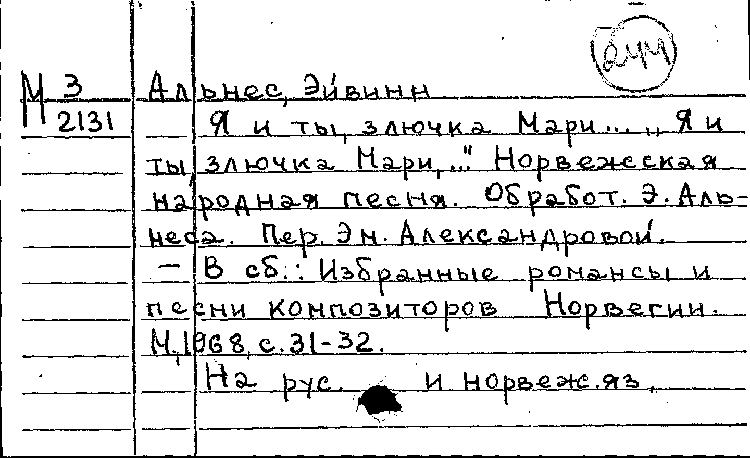 244
М 3
2131
Альнес, Эйвинн
Я и ты, злючка Мари... „Я и
ты, злючка Мари,..." Норвежская
народная песня. Обработ. Э. Аль-
неса. Пер. Эм. Александровой.
— В сб.: Избранные романсы и
песни композиторов Норвегии.
М, 1968, с. 31-32.
На рус. и норвеж. яз.